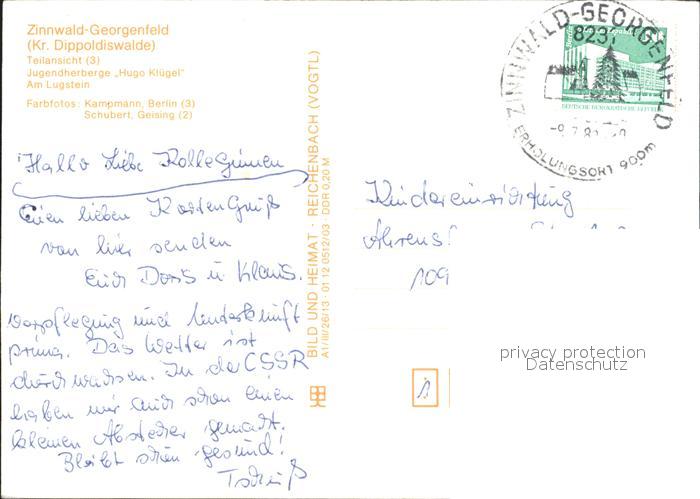 Zinnwald-Georgenfeld
(Kr. Dippoldiswalde)
Teilansicht (3)
Jugendherberge „Hugo Klügel"
Am Lugstein
Farbfotos: Kampmann, Berlin (3)
Schubert, Geising (2)
Hallo Liebe Kolleginnen
Einen lieben Kartengruß
von hier senden
Euch Doris u. Klaus.
Verpflegung und Unterkunft
prima. Das Wetter ist
durchwachsen. In der CSSR
haben wir auch schon einen
kleinen Abstecher gemacht.
Bleibt schön gesund!
Tschüß
BILD UND HEIMAT · REICHENBACH (VOGTL)
A1/III/26/13 · 01 12 0512/03 · DDR 0,20 M
ZINNWALD-GEORGENFELD
ERHOLUNGSORT 900m
DEUTSCHE DEMOKRATISCHE
Kindereinrichtung
Ahrens
109
privacy protection
Datenschutz